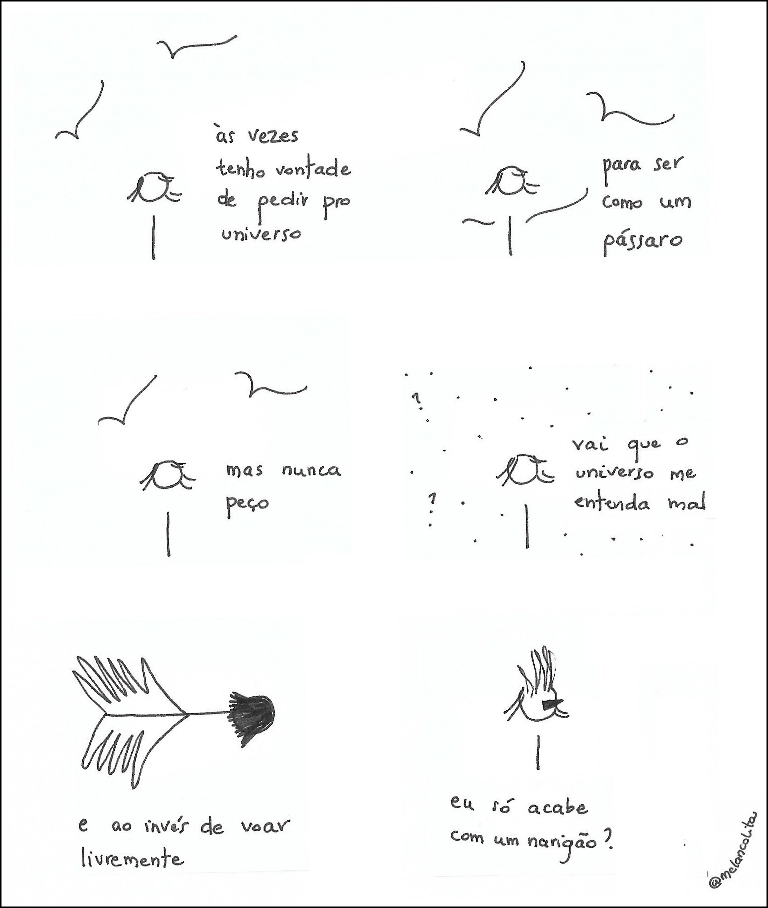 às vezes
tenho vontade
de pedir pro
universo
para ser
como um
pássaro
mas nunca
peço
?
?
vai que o
universo me
entenda mal
e ao invés de voar
livremente
eu só acabe
com um narigão?
@melancolitas